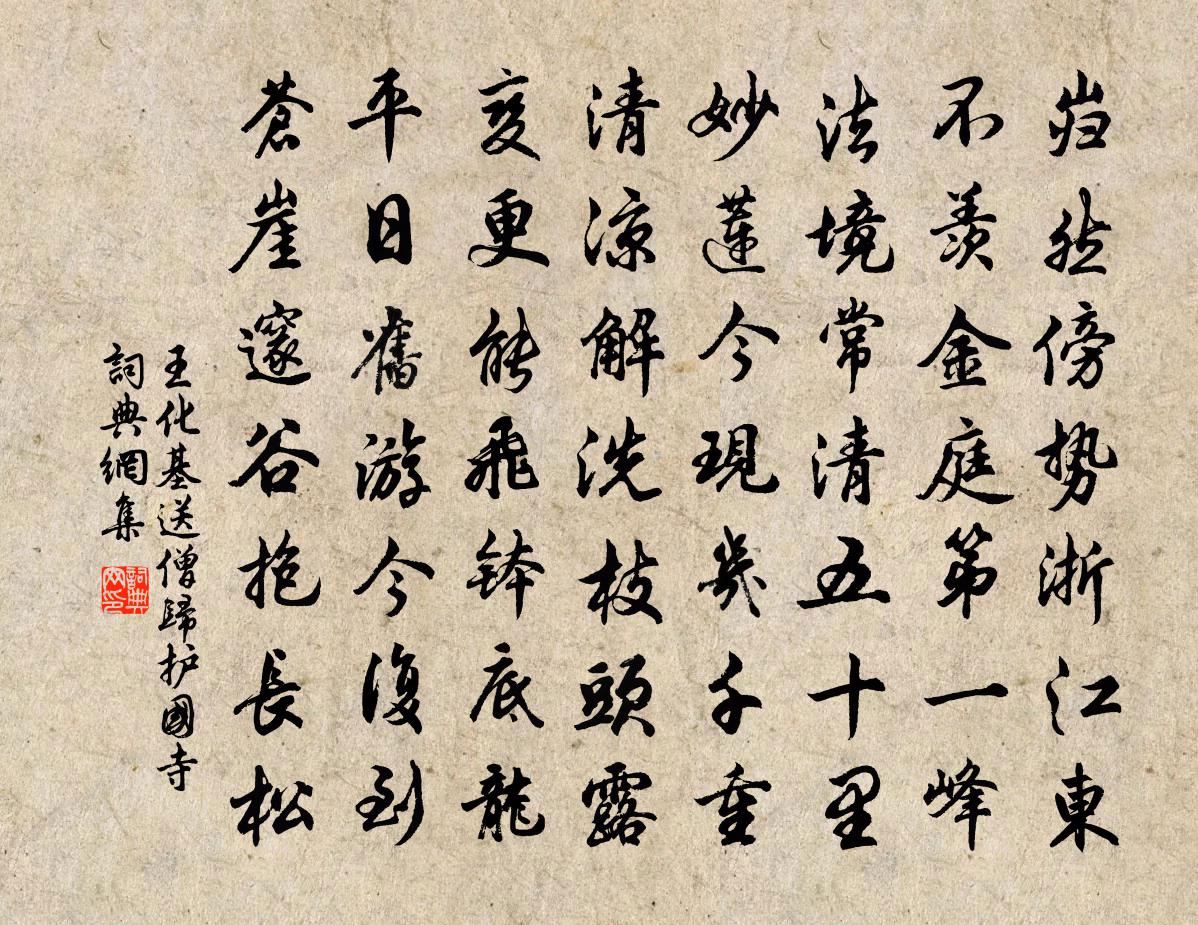 岿然傍势浙江東
不羡金庭第一峰
法境常清五十里
妙蓮今現幾千重
清涼解洗枝頭露
变更能飛鉢底龍
平日舊游今復到
蒼崖邃谷抱長松
王化基送僧歸护國寺
詞典網集
詞典网印